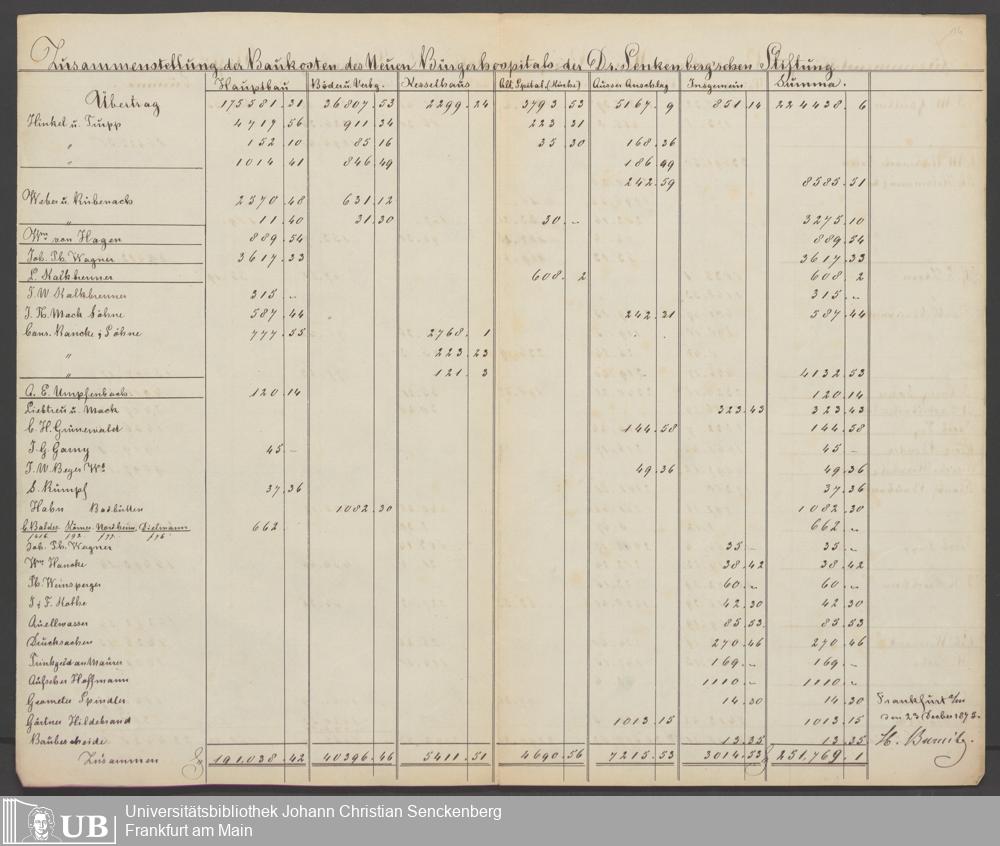 Zusammenstellung der Baukosten des Neuen Bürgerhospitals der Dr. Senkenberg'schen Stiftung
Hauptbau Bäder u. Verbg. Kesselhaus Alt. Spital. (Küche) Ausser Anschlag Insgemein Summa.
Übertrag 175581.31 36807.53 2299.24 3793.53 5167.9 851.14 224438.6
Hinkel u. Trupp 4717.56 911.34 223.31
" 152.10 85.16 35.30 168.36
" 1014.41 846.49 186.49
242.59 8585.51
Weber u. Rübenach 2570.48 631.12
" 11.40 31.30 30.– 3275.10
Wm. von Hagen 889.54 889.54
Joh. Ph. Wagner 3617.33 3617.33
L. Kalkbrenner 608.2 608.2
F. W. Kalkbrenner 315.– 315.–
J. K. Mack Söhne 587.44 242.31 587.44
Cons. Rancke & Söhne 777.55 2768.1
" 223.23
" 121.3 4132.53
A. E. Umpfenbach. 120.14 120.14
Liebtreu u. Mack 323.43 323.43
C. H. Grünewald 144.58 144.58
J. G. Gamy 45.– 45.–
J. W. Beyer We 49.36 49.36
S. Rumpf 37.36 37.36
Hahn Badbütten 1082.30 1082.30
C. Balder. Römer. Nordheim. Dielmann 662. 662.–
Joh. Ph. Wagner 35.– 35.–
Wm. Hancke 38.42 38.42
Ph. Weinsperger 60.– 60.–
J & F. Rothe 42.30 42.30
Quellwasser 85.53 85.53
Drucksachen 270.46 270.46
Trinkgeld an Maurer 169.– 169.–
Aufseher Hoffmann 1110.– 1110.–
Geometer Spindler 14.30 14.30 Frankfurt a/m
Gärtner Hildebrand 1013.15 1013.15 den 23 December 1875.
Baubescheide 13.35 13.35 H. Burnitz.
Zusammen 191.038.42 40396.46 5411.51 4690.56 7215.53 3014.53 251.769.1
UB
Universitätsbibliothek Johann Christian Senckenberg
Frankfurt am Main